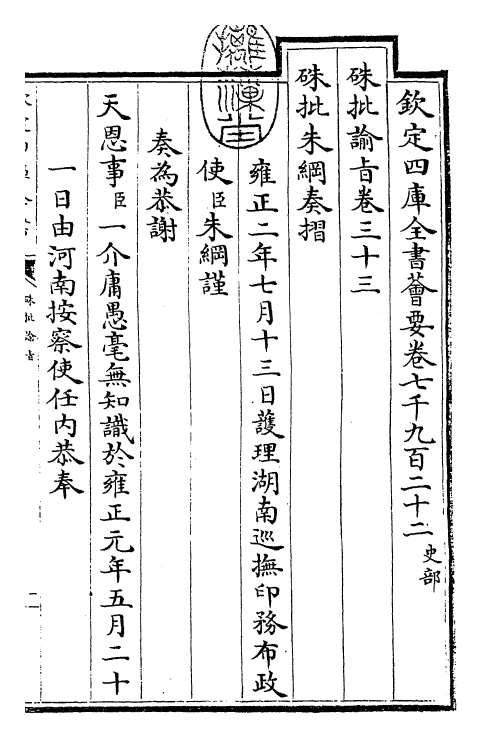 欽定四庫全書薈要卷七千九百二十二 史部
硃批諭旨卷三十三
硃批朱綱奏摺
雍正二年七月十三日護理湖南巡撫印務布政
使臣朱綱謹
奏為恭謝
天恩事臣一介庸愚毫無知識於雍正元年五月二十
一日由河南按察使任內恭奉
硃批諭旨